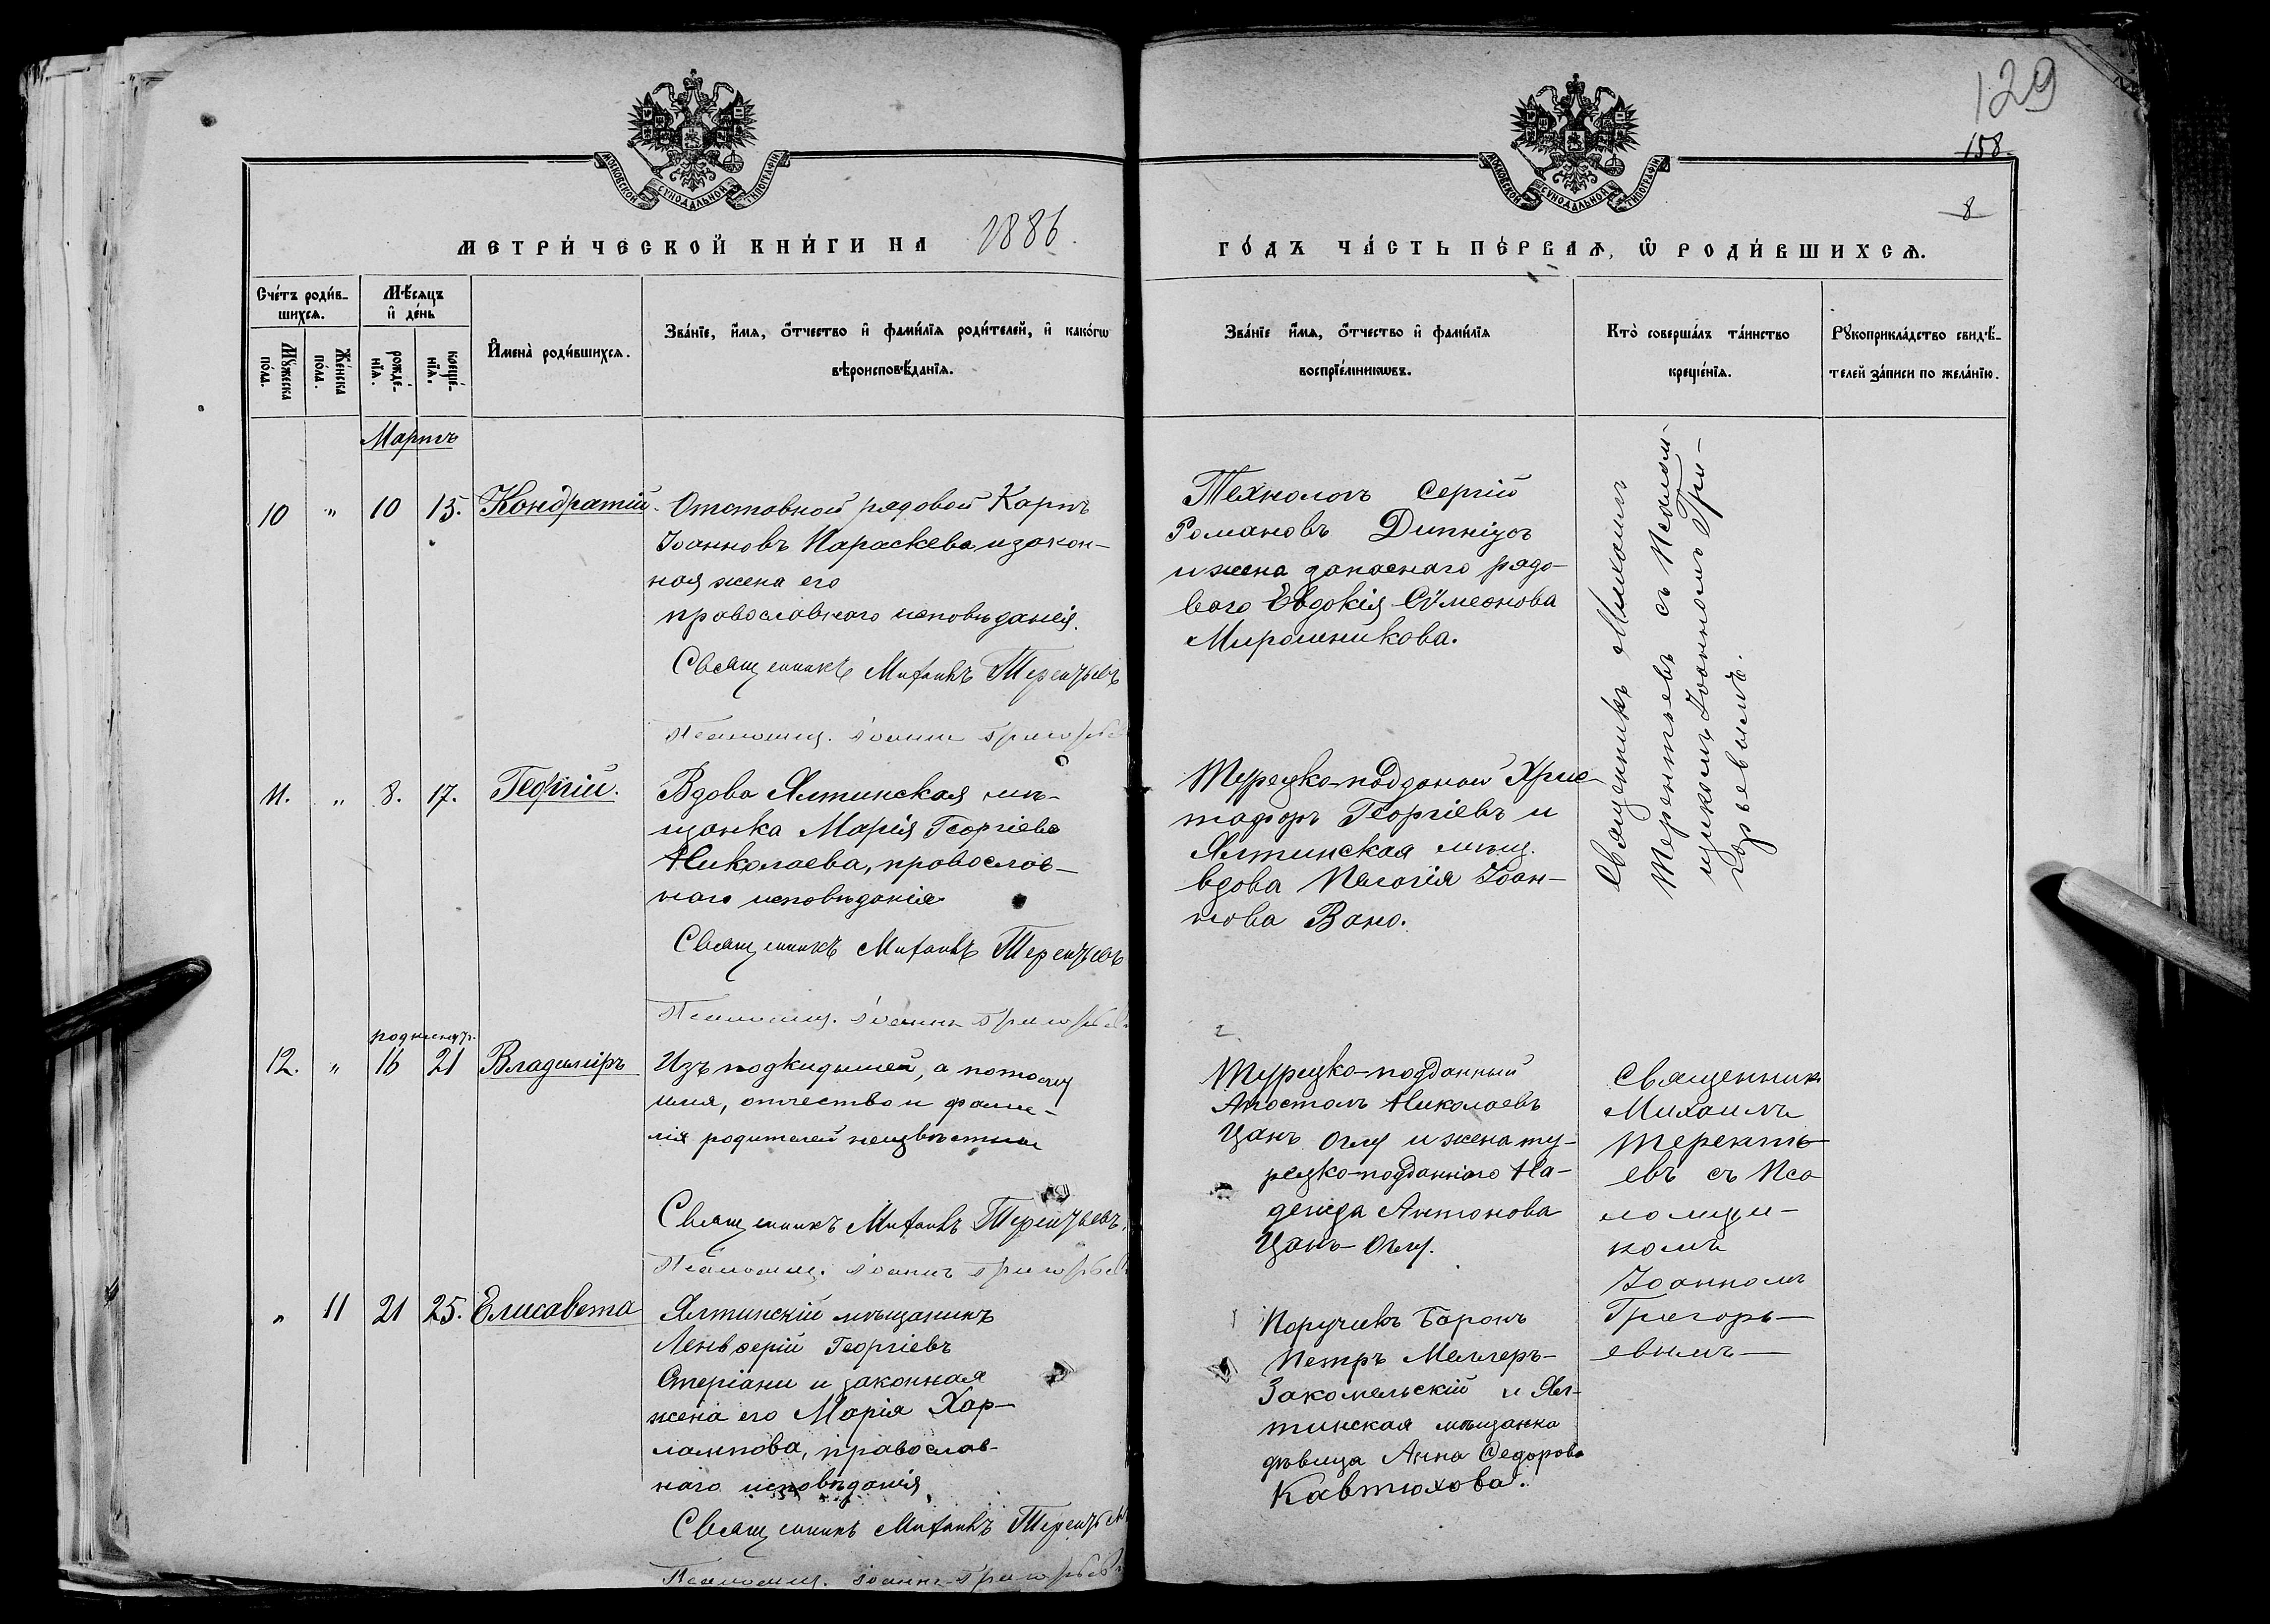 129
158
8
МОСКОВСКОЙ СѴНОДАЛЬНОЙ ТИПОГРАФІИ
МОСКОВСКОЙ СѴНОДАЛЬНОЙ ТИПОГРАФІИ
МЕТРИ́ЧЕСКОЙ КНИ́ГИ НА 1886.
ГО́ДЪ ЧА́СТЬ ПЕ́РВАѦ, Ѽ РОДИ́ВШИХСѦ.
Сче́тъ роди́в-
шихсѧ.
Мꙋ́жеска
по́ла.
Же́нска
по́ла.
Мѣ́сяцъ
и҆ де́нь
рожде́-
нїѧ.
креще́-
нїѧ.
И҆мена̀ роди́вшихсѧ.
Зва́нїе, и҆́мѧ, ѻ҆́тчество и҆ фами́лїѧ роди́телей, и҆ како́гѡ
вѣроисповѣ́данїѧ.
Зва́нїе и҆́мѧ, ѻ҆́тчество и҆ фами́лїѧ
воспрїе́мникѡвъ.
Кто̀ соверша́лъ та́инство
креще́нїѧ.
Рꙋкоприкла́дство свидѣ́-
телей за́писи по жела́нїю.
Мартъ
10 " 10 15. Кондратій. Отставной рядовой Карпъ
Іоанновъ Параскева и закон-
ная жена его
православнаго исповѣданія.
Священникъ Михаилъ Терентьевъ
Псаломщ. Іоаннъ Григорьев
Технологъ Сергій
Романовъ
и жена запаснаго рядо-
вого Евдокія Сѵмеонова
Мирошникова.
Священникъ Михаилъ
Терентьевъ съ Псалом-
щикомъ Іоанномъ Гри-
горьевымъ.
11. " 8. 17. Георгій. Вдова Ялтинская мѣ-
щанка Марія Георгіева
Николаева, православ-
наго исповѣданія
Священникъ Михаилъ Терентьевъ
Псаломщ. Іоаннъ Григорьев
Турецко-подданой Хрис-
тофоръ Георгіевъ и
Ялтинская мѣщ.
вдова Пелагія Іоан-
нова Вано.
12. " 16 21 Владиміръ Изъ подкидышей, а потому
имя, отчество и фами-
лія родителей неизвѣстны
Священникъ Михаилъ Терентьевъ.
Псаломщ. Іоаннъ Григорьев
Турецко-подданный
Апостолъ Николаевъ
Цанъ Оглу и жена ту-
рецко-подданнаго На-
дежда Антонова
Цанъ-Оглу.
Священникъ
Михаилъ
Теренть-
евъ съ Пса
ломщи-
комъ
Іоанномъ
Григорь-
евымъ
" 11 21 25. Елисавета Ялтинскій мѣщанинъ
Георгіевъ
Стеріани и законная
жена его Марія Хар-
лампова, православ-
наго исповѣданія
Священникъ Михаилъ Терентьевъ
Псаломщ. Іоаннъ Григорьев
Поручикъ Баронъ
Петръ Меллеръ-
Закомельскій и Ял-
тинская мѣщанка
дѣвица Анна Ѳедорова
Кавтюхова.